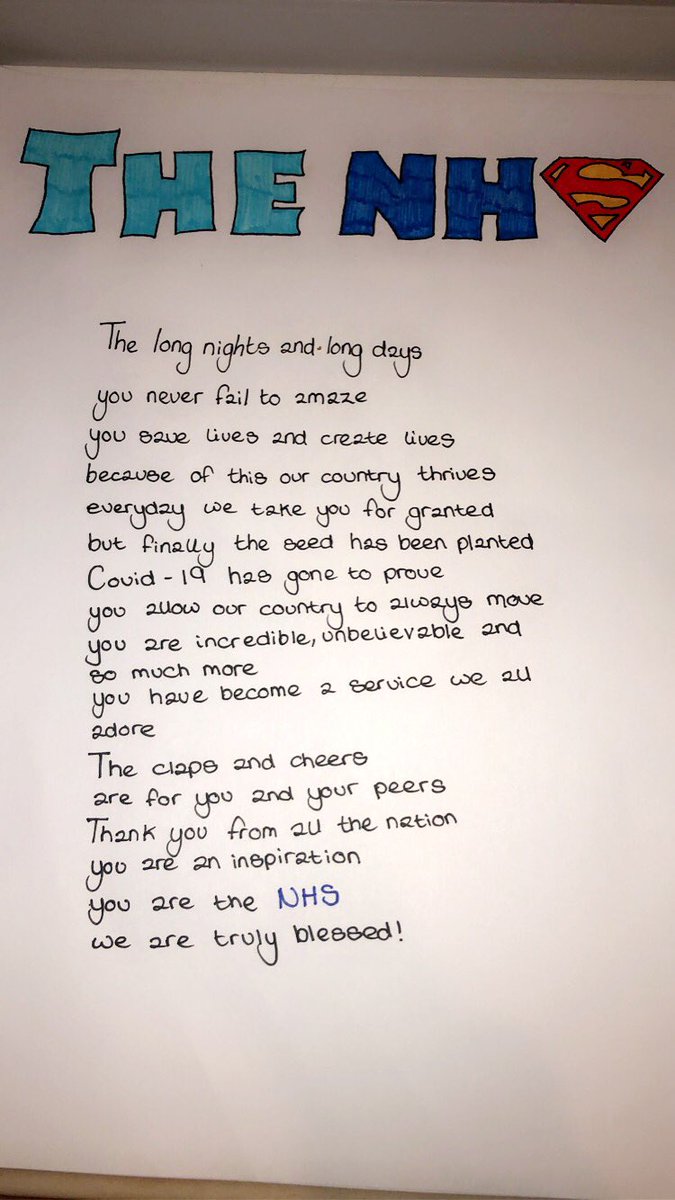 THE NHS
The long nights and long days
you never fail to amaze
you save lives and create lives
because of this our country thrives
everyday we take you for granted
but finally the seed has been planted
Covid-19 has gone to prove
you allow our country to always move
you are incredible, unbelievable and
so much more
you have become a service we all
adore
The claps and cheers
are for you and your peers
Thank you from all the nation
you are an inspiration
you are the NHS
we are truly blessed!